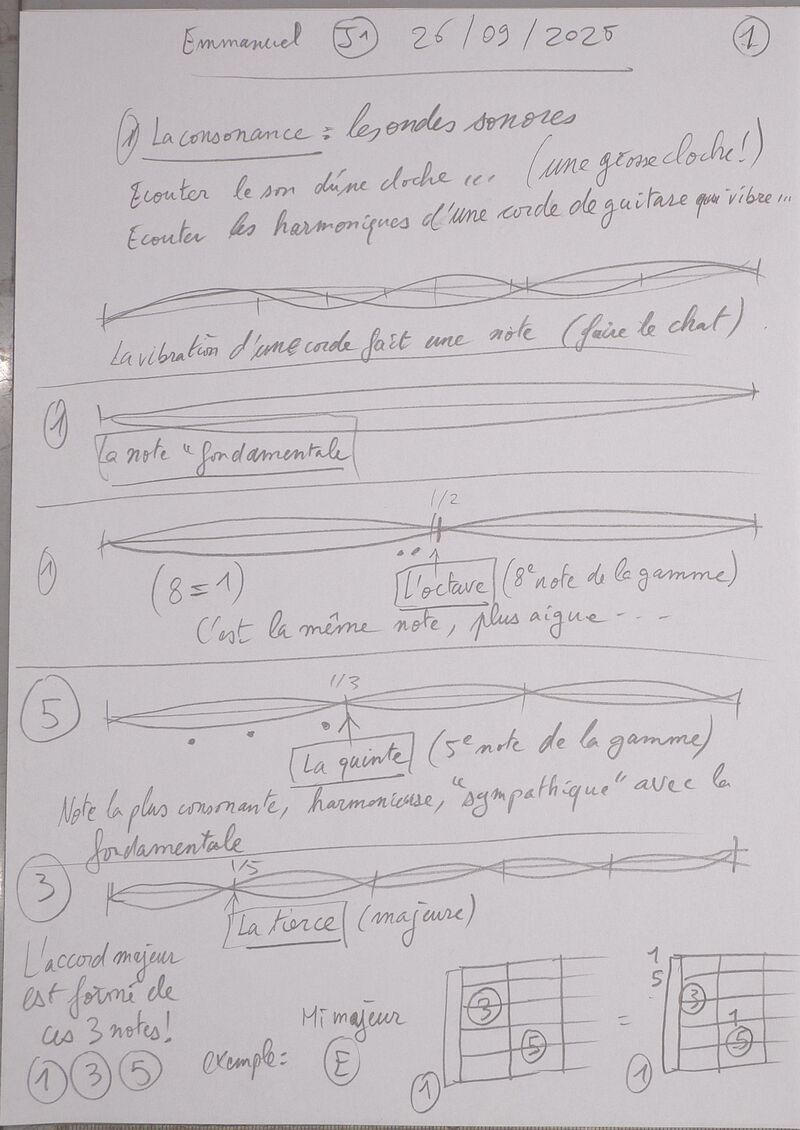 Emmanuel J1 26/09/2025 1
1) La consonance = les ondes sonores
Ecouter le son d'une cloche ... (une grosse cloche!)
Ecouter les harmoniques d'une corde de guitare qui vibre...
La vibration d'une corde fait une note (faire le chat)
1
La note "fondamentale
1/2
1
(8 = 1) L'octave (8e note de la gamme)
C'est la même note, plus aigue - - -
1/3
5
La quinte (5e note de la gamme)
Note la plus consonante, harmonieuse, "sympathique" avec la
fondamentale
3 1/5
La tierce (majeure)
L'accord majeur
est formé de
ces 3 notes!
1 3 5
exemple:
Mi majeur
E
3
5
1
=
1
5
3
1
5
1